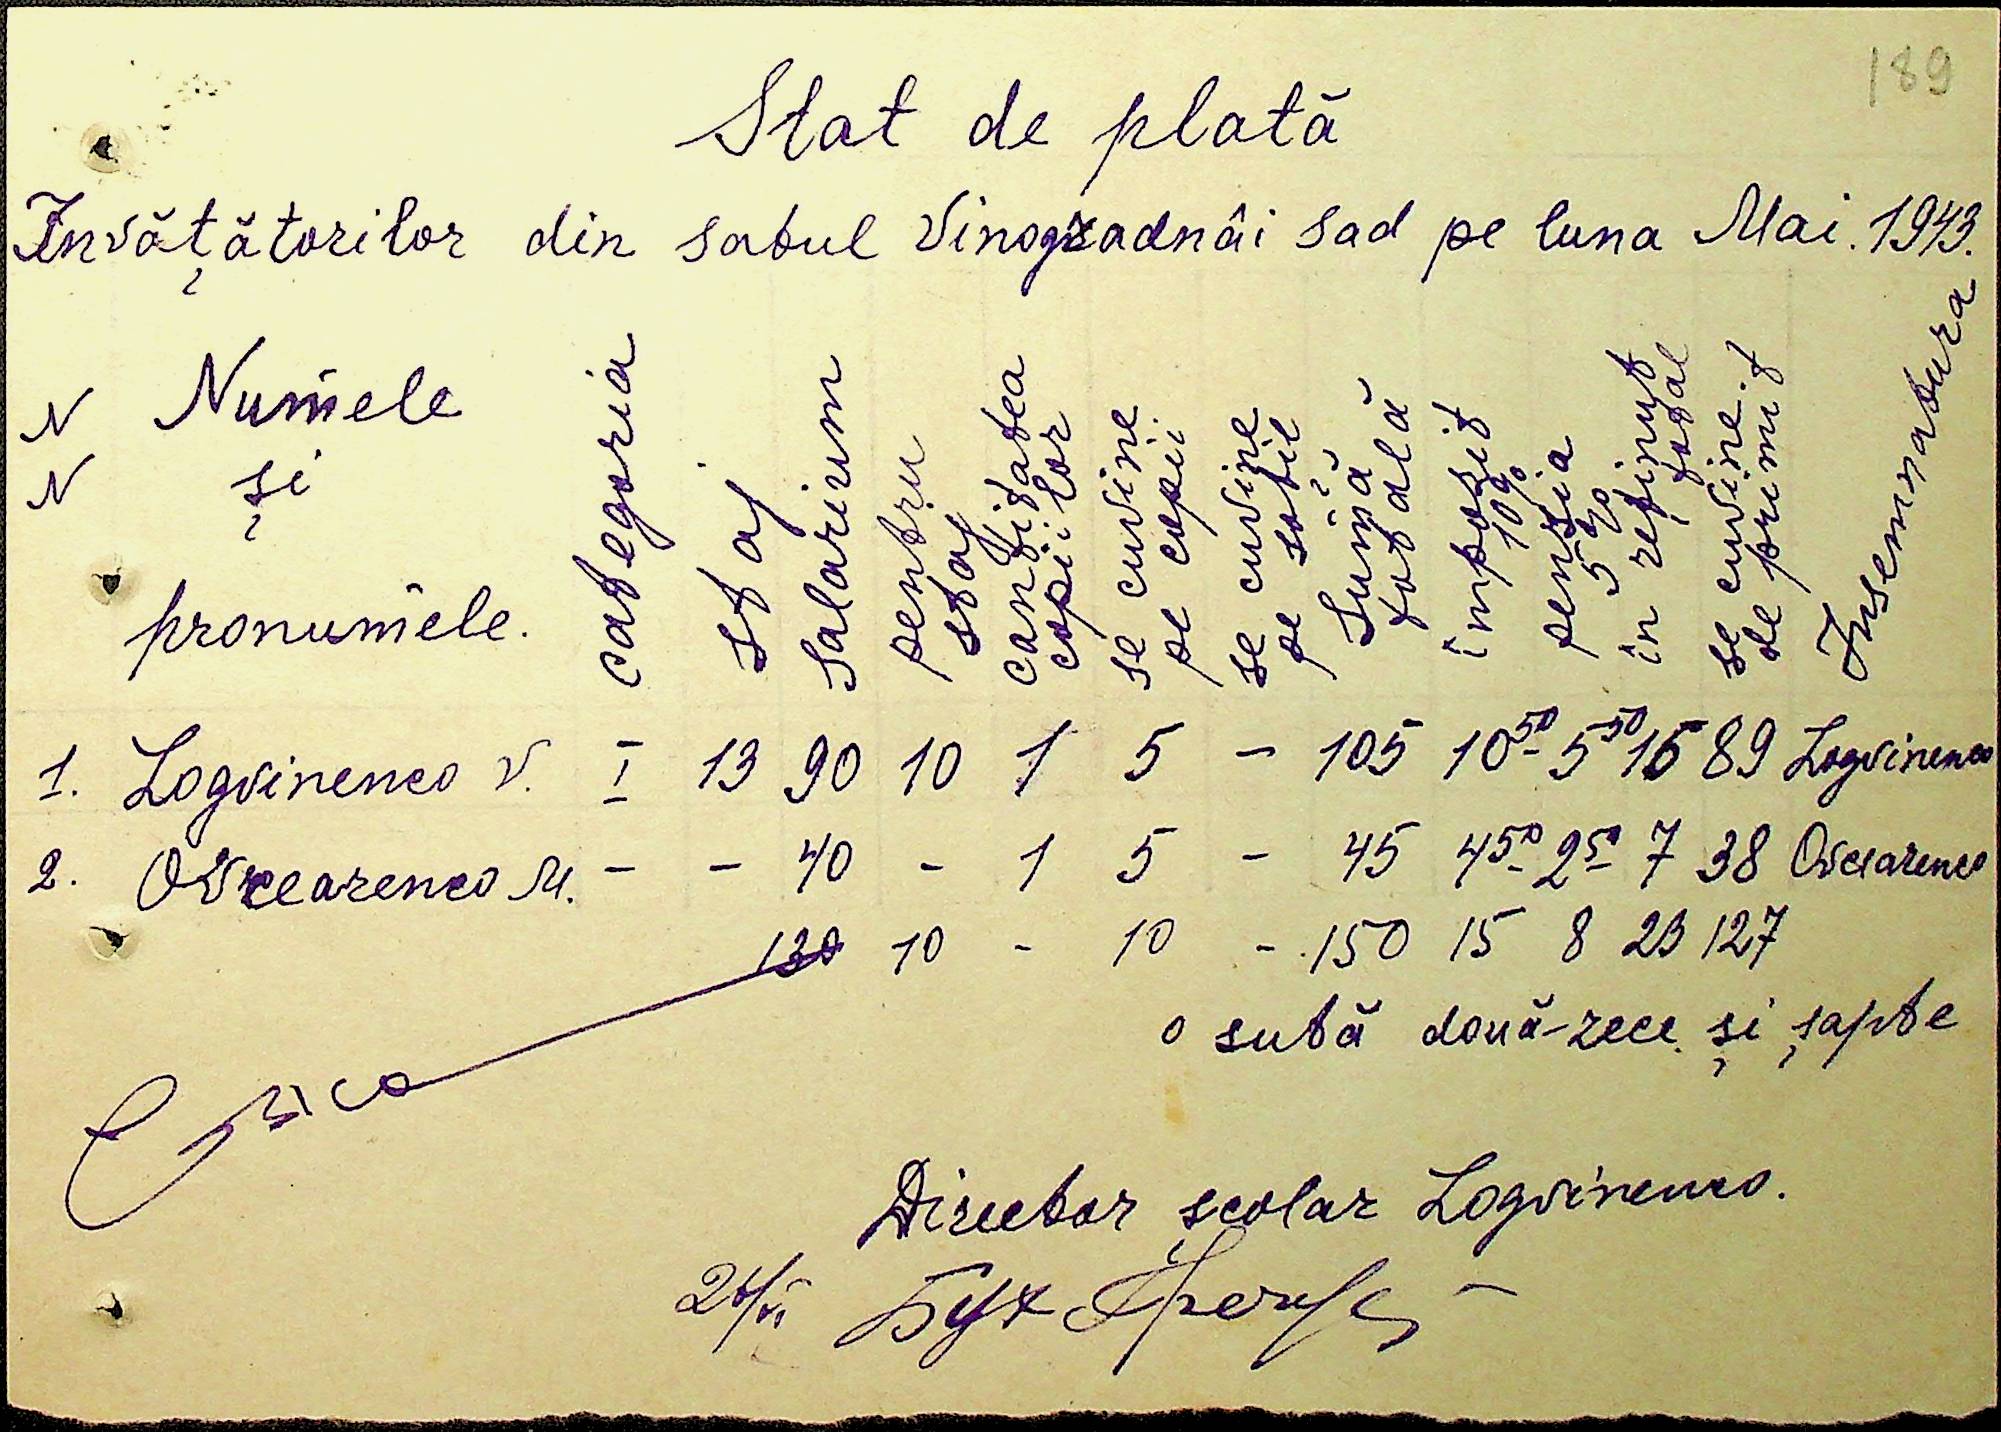 189
Stat de plată
Învățătorilor din satul Vinogradnâi sad pe luna Mai. 1943.
N N Numele și pronumele. categoria staj salarium pentru staj cantitatea copiilor se cuvine pe copii se cuvine pe sotie Sumă totală împozit 10% pensia 5% în reținut total se cuvine de primit Insemnatura
1. Logvinenco V. I 13 90 10 1 5 - 105 10 50 - 5 50 16 89 Logvinenco
2. Ovcearenco M. - - 40 - 1 5 - 45 4 50 - 2 50 7 38 Ovcearenco
130 10 - 10 - 150 15 8 23 127
o sută două-zece și șapte
Director școlar Logvinenco.
Бух